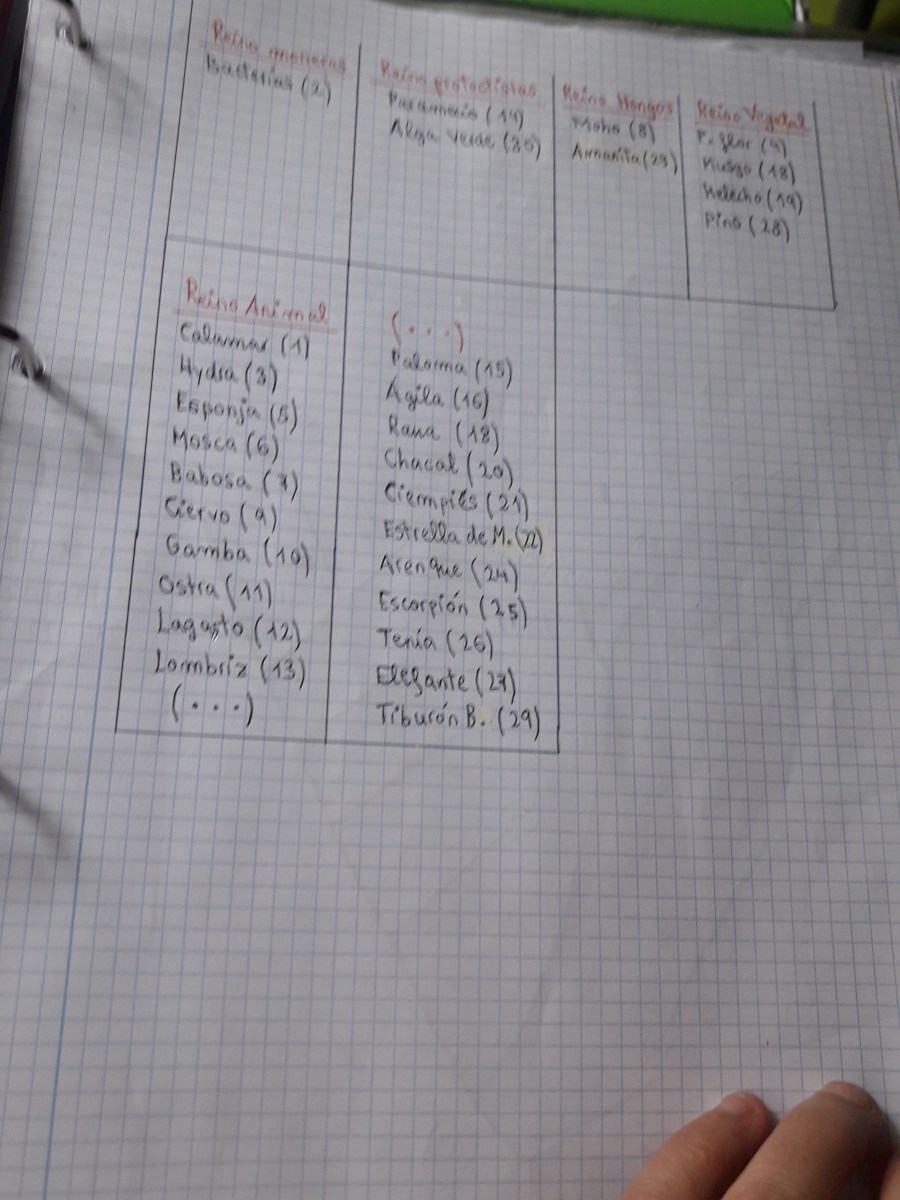 Reino moneras
Bacterias (2)
Reino protoctistas
Paramecio (14)
Alga verde (30)
Reino Hongos
Moho (8)
Amanita (23)
Reino Vegetal
P. flor (4)
Musgo (18)
Helecho (19)
Pino (28)
Reino Animal
Calamar (1)
Hydra (3)
Esponja (5)
Mosca (6)
Babosa (7)
Ciervo (9)
Gamba (10)
Ostra (11)
Lagarto (12)
Lombriz (13)
(...)
(...)
Paloma (15)
Ágila (16)
Rana (18)
Chacal (20)
Ciempiés (21)
Estrella de M. (22)
Arenque (24)
Escorpión (25)
Tenia (26)
Elefante (27)
Tiburón B. (29)